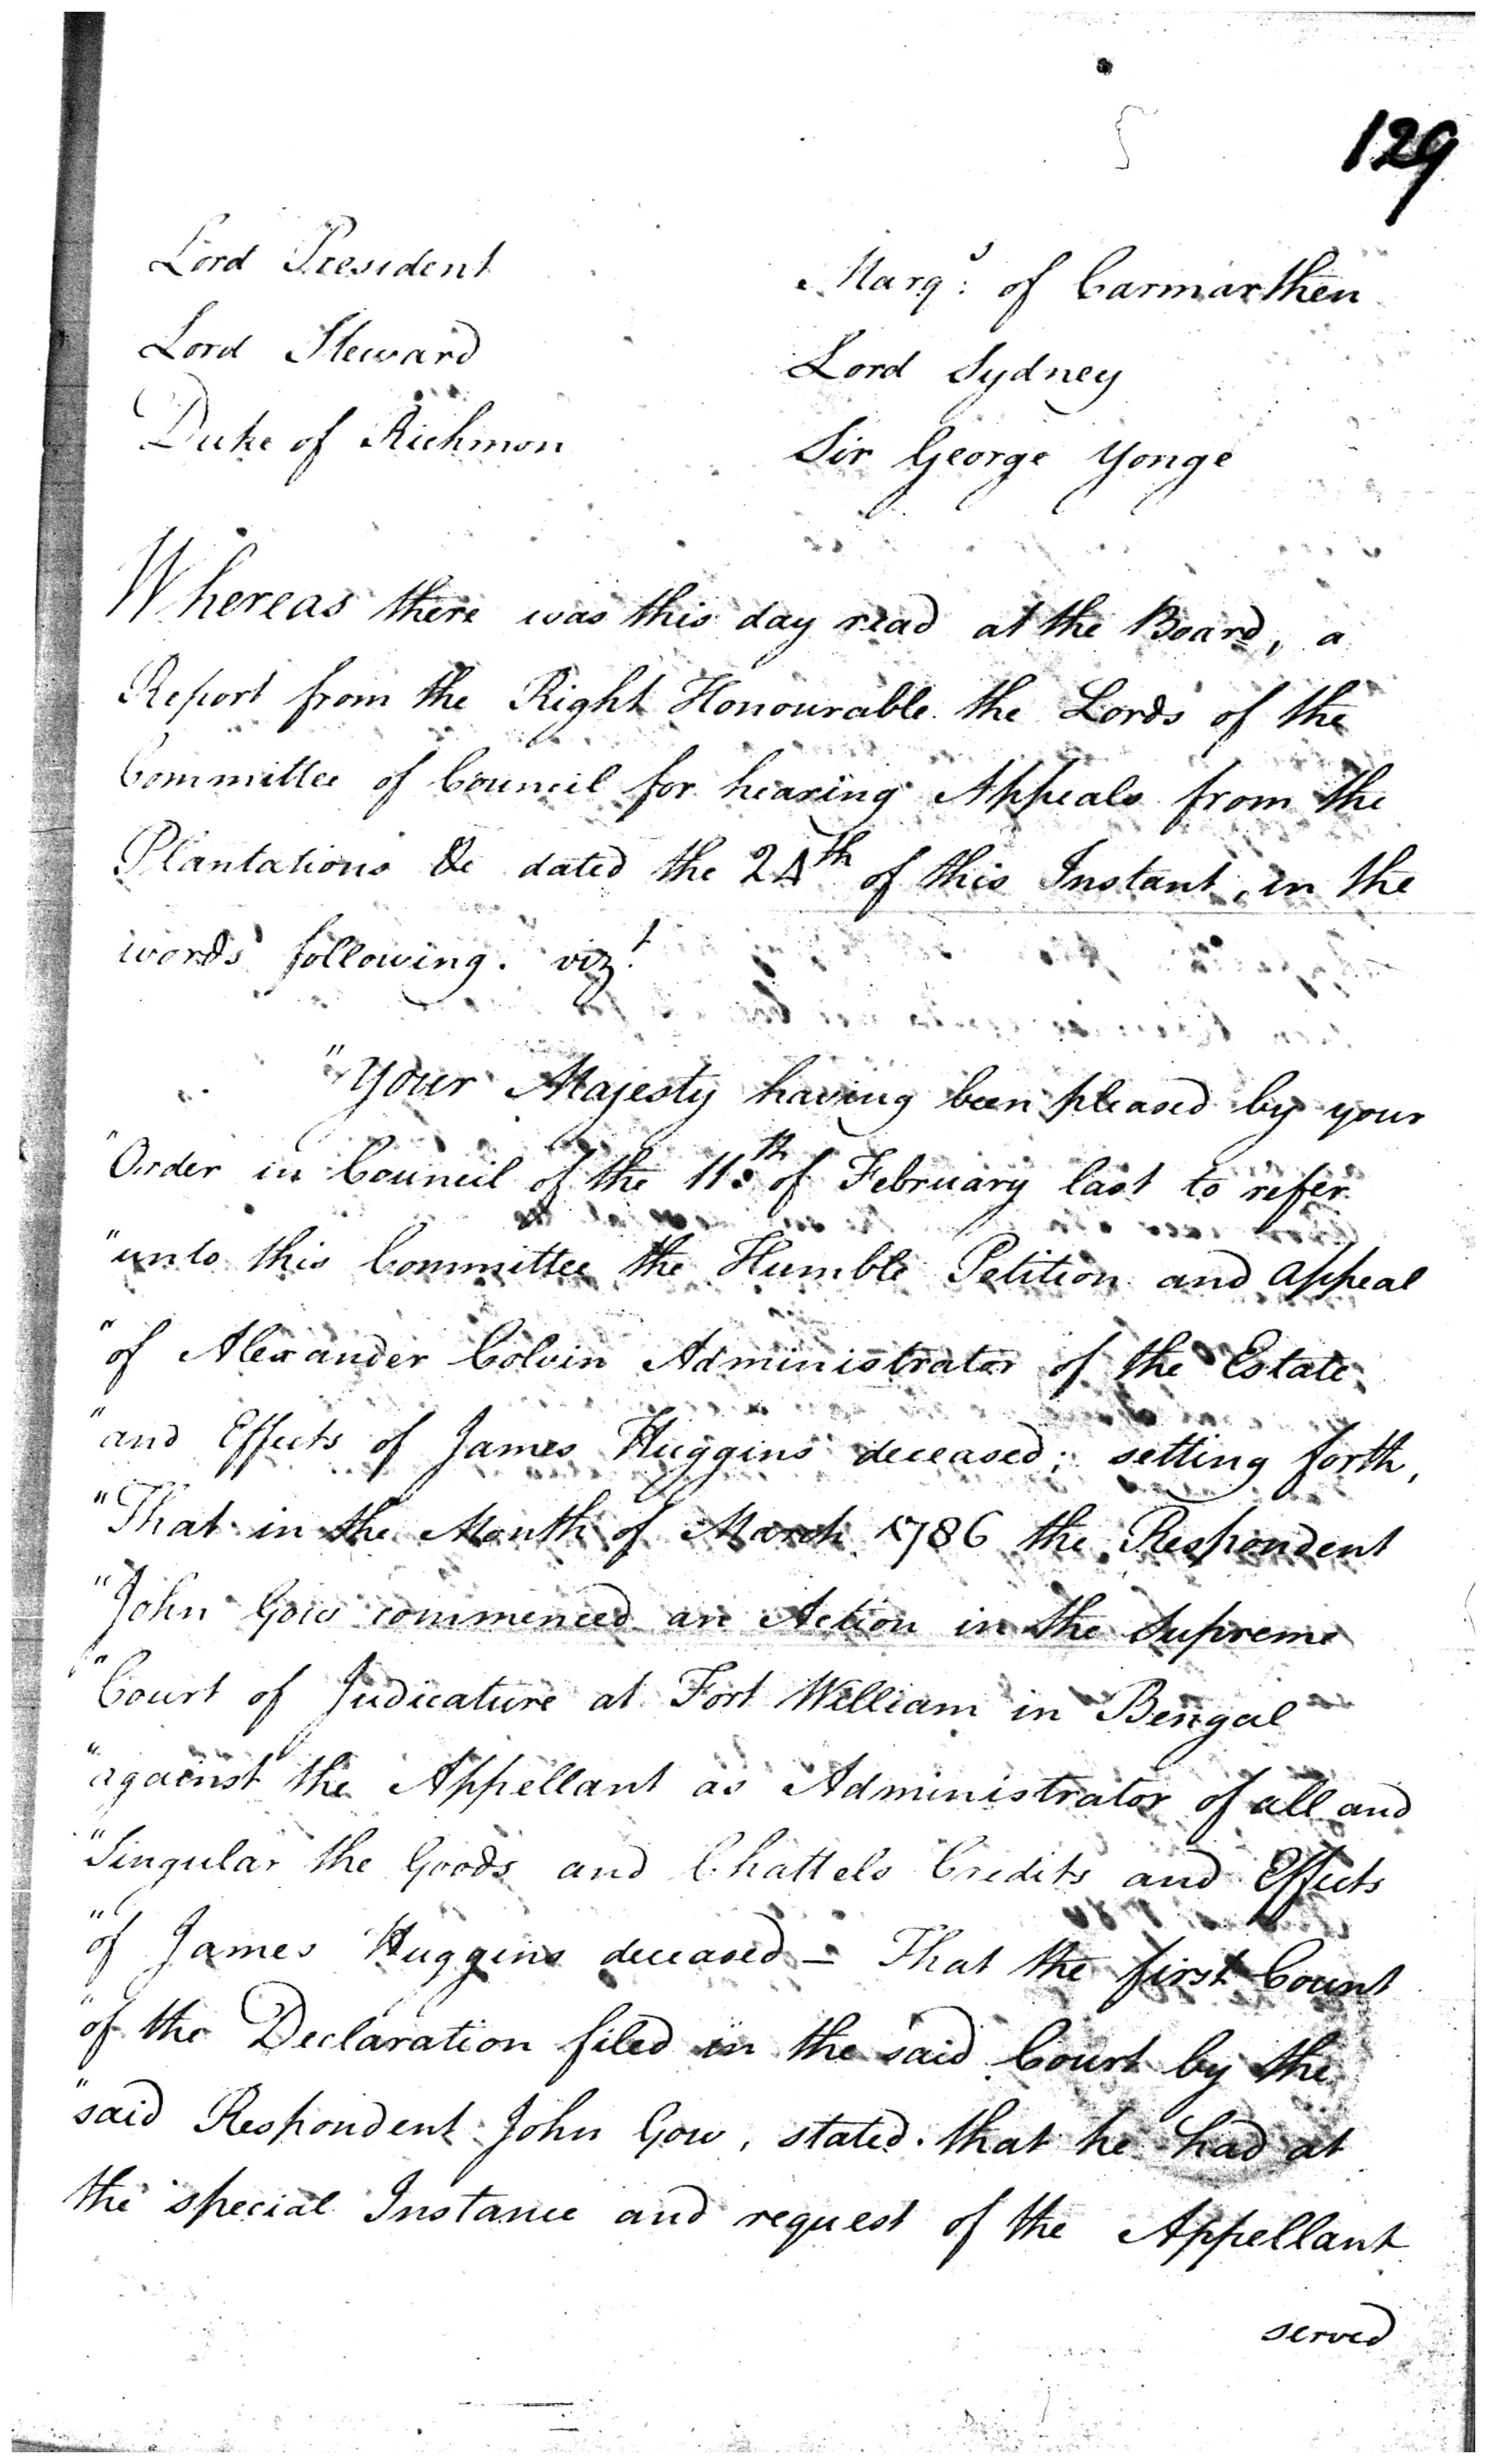 129
Lord President
Lord Steward
Duke of Richmon
Marq:s of Carmarthen
Lord Sydney
Sir George Yonge
Whereas there was this day read at the Board, a
Report from the Right Honourable the Lords of the
Committee of Council for hearing Appeals from the
Plantations &c dated the 24th of this Instant, in the
words following. vizt.
"Your Majesty having been pleased by your
"Order in Council of the 11th of February last to refer
"unto this Committee the Humble Petition and Appeal
"of Alexander Colvin Administrator of the Estate
"and Effects of James Huggins deceased; setting forth,
"That in the Month of March 1786 the Respondent
"John Gow commenced an Action in the Supreme
"Court of Judicature at Fort William in Bengal
"against the Appellant as Administrator of all and
"Singular the Goods and Chattels Credits and Effects
"of James Huggins deceased – That the first Count
"of the Declaration filed in the said Court by the
"said Respondent John Gow, stated that he had at
the special Instance and request of the Appellant
served